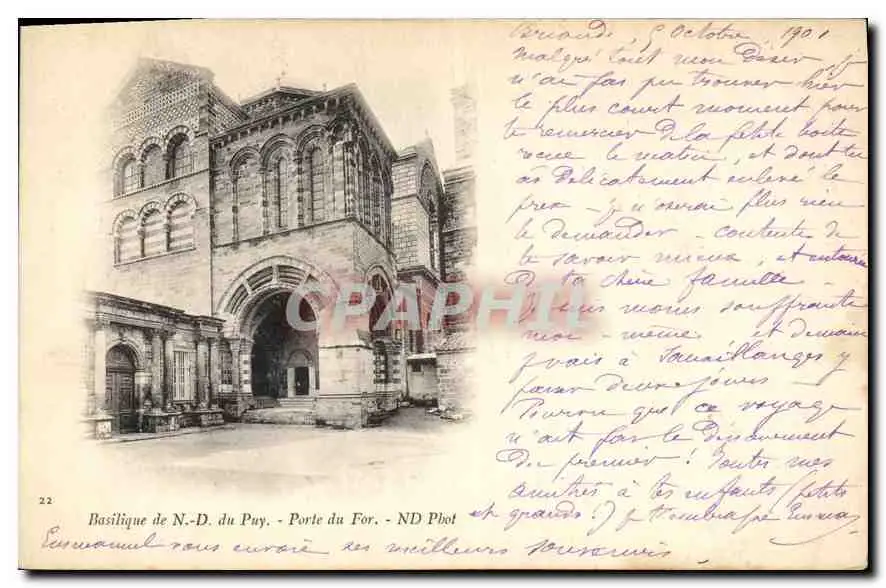 Brioude, 5 Octobre 1901
Malgré tout mon désir, je
n'ai pas pu trouver hier
le plus court moment pour
te remercier de la petite boîte
reçue le matin, et dont tu
as délicatement enlevé le
prix - je n'oserai plus rien
te demander - contente de
te savoir mieux, et entourée
de ta chère famille
Je suis moins souffrante
moi-même et demain
je vais à Javaillanges y
passer deux jours -
Pourvu que ce voyage
n'ait pas le dénouement
du premier ! Toutes mes
amitiés à tes enfants (petits
et grands !) je t'embrasse Emma
CAPHILI
22
Basilique de N.-D. du Puy. - Porte du For. - ND Phot
Emmanuel vous envoie ses meilleurs souvenirs